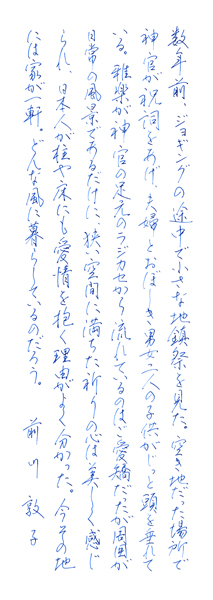 数年前、ジョギングの途中で小さな地鎮祭を見た。空き地だった場所で
神官が祝詞をあげ、夫婦とおぼしき男女、二人の子供がじっと頭を垂れて
いる。雅楽が神官の足元のラジカセから流れているのはご愛嬌だったが周囲が
日常の風景であるだけに、狭い空間に満ちた祈りの心は美しく感じ
られ、日本人が柱や床にも愛情を抱く理由がよく分かった。今その地
には家が一軒。どんな風に暮らしているのだろう。
前川敦子